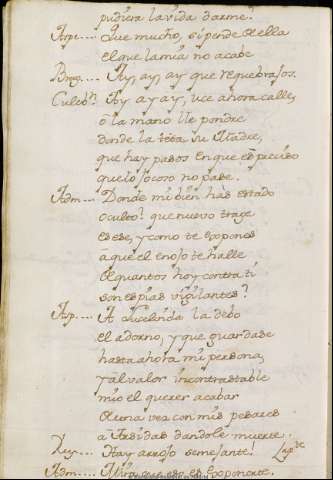 pudiera la vida darme?
Aspe.... Que mucho, si pende de ella
el que la mia no acabe
Bog.... Ay, ay, ay que requebrajos.
Culeb.n Ay ay ay, uce ahora calle,
ò la mano lle pondre
donde la teta su Madre,
que hay pasos en que es preciso
que lo jocoso no pase.
Adm... Donde mi bien has estado
oculto? que nuevo traje
es ese, y como te espones
a que el enojo te halle
de quantos hoy contra ti
son espias vigilantes?
Asp.... A Luselinda la debo
el adorno, y que guardase
hasta ahora mi persona,
y al valor incontrastable
mio el querer acabar
de una vez con mis pesares
a dandole muerte.
Rey... Hay arrojo semejante!
Adm... Mira que eso es esponerte.